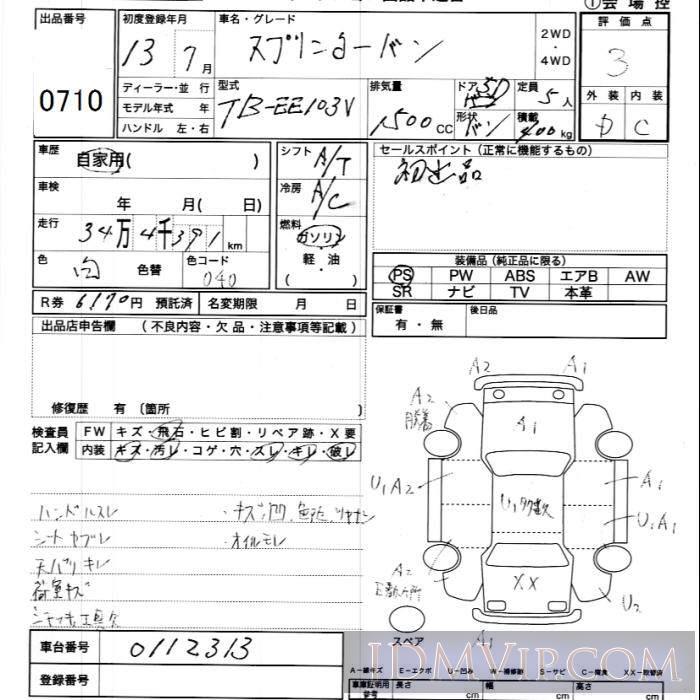 出品番号
0710
初度登録年月
13 7月
車名・グレード
スプリンターバン
2WD
・
4WD
①会場控
評価点
3
外装 内装
D C
ディーラー・並行
モデル年式 年
ハンドル 左・右
型式
TB-EE103V
排気量
1500cc
ドア 5D
形状 バン
定員 5人
積載 400kg
車歴
自家用( )
車検
年 月( 日)
走行
34万4千391km
色 白 色替
色コード 040
シフト A/T
冷房 A/C
燃料
ガソリン
・
軽・油
( )
セールスポイント(正常に機能するもの)
初出品
装備品(純正品に限る)
PS PW ABS エアB AW
SR ナビ TV 本革
R券 6170円 預託済 名変期限 月 日
保証書
有・無
後日品
出品店申告欄 (不良内容・欠品・注意事項等記載)
修復歴 有〔箇所 〕
検査員
記入欄
FW キズ・飛石・ヒビ割・リペア跡・X要
内装 キズ・汚レ・コゲ・穴・スレ・キレ・破レ
ハンドルスレ
シートヤブレ
・オイルモレ
天バリキレ
荷室キズ
A2 A1
A2
A1
U1A2
A1
U1A1
A2
XX
U2
スペア
A1
車台番号
0112313
登録番号
A−線キズ E−エクボ U−凹み W−補修跡 S−サビ C−腐食 XX−取替済
車庫証明用
参考
長さ cm
幅 cm
高さ cm
JDMVIP.COM